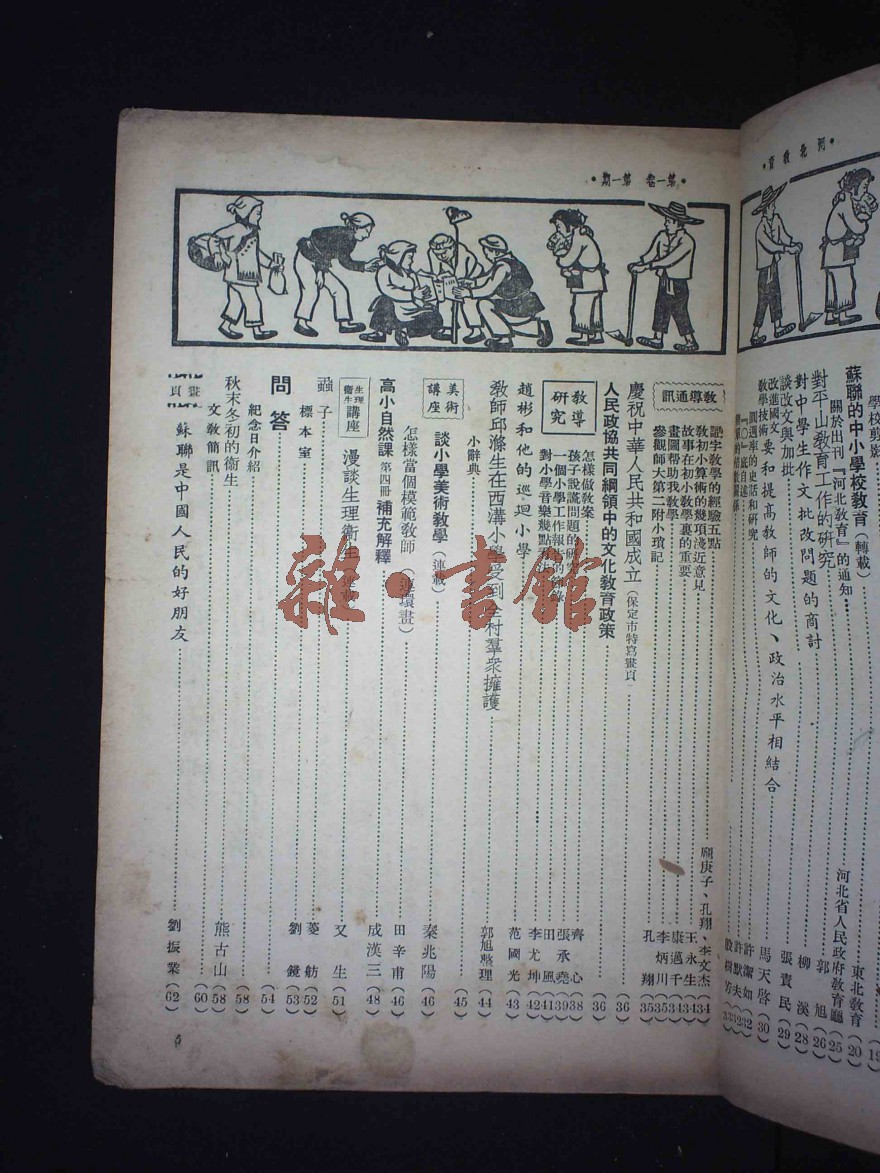 •河北教育•
•第一卷 第一期•
學校剪影(19
蘇聯的中小學校教育(轉載)東北教育(20)
關於出刊『河北教育』的通知河北省人民政府教育廳(25)
對平山教育工作的研究郭旭(26)
對中學生作文批改問題的商討柳溪(28)
談改文與加批張責民(29)
改進國文教學技術要和提高教師的文化、政治水平相結合馬天啓(30)
圓週率的史話和研究許潔如(32)
『〇』底自述許默夫
教導通訊
識字教學的經驗五點龐庚子、孔翔、李文杰(34)
教初小算術的幾項淺近意見王永生(34)
故事在初小教學裏的重要康邁千(34)
畫圖帮助我教學李炳川(35)
參觀師大第二附小瑣記孔翔(35)
慶祝中華人民共和國成立(保定市特寫畫頁)(36)
人民政協共同綱領中的文化教育政策(36)
教導研究
怎樣做教案齊心(38)
孩子說謊問題的研究張承堯(39)
一個小學工作報告的田風(41)
對小學音樂幾點李尤坤(42)
趙彬和他的巡迴小學范國光(43)
教師邱滌生在西溝小學受到全村羣衆擁護郭旭整理(44)
小辭典(45)
美術講座
談小學美術教學(連載)秦兆陽(46)
怎樣當個模範教師(連環畫)田辛甫(46)
高小自然課第四冊補充解釋成漢三(48)
生理衛生講座
漫談生理衛生又生(51)
蝨子菱舫(52)
標本室劉鏡(53)
問答(54)
紀念日介紹(58)
秋末冬初的衛生熊古山(58)
文教簡訊(60)
畫頁
蘇聯是中國人民的好朋友劉振業(62)
5
雜·書館